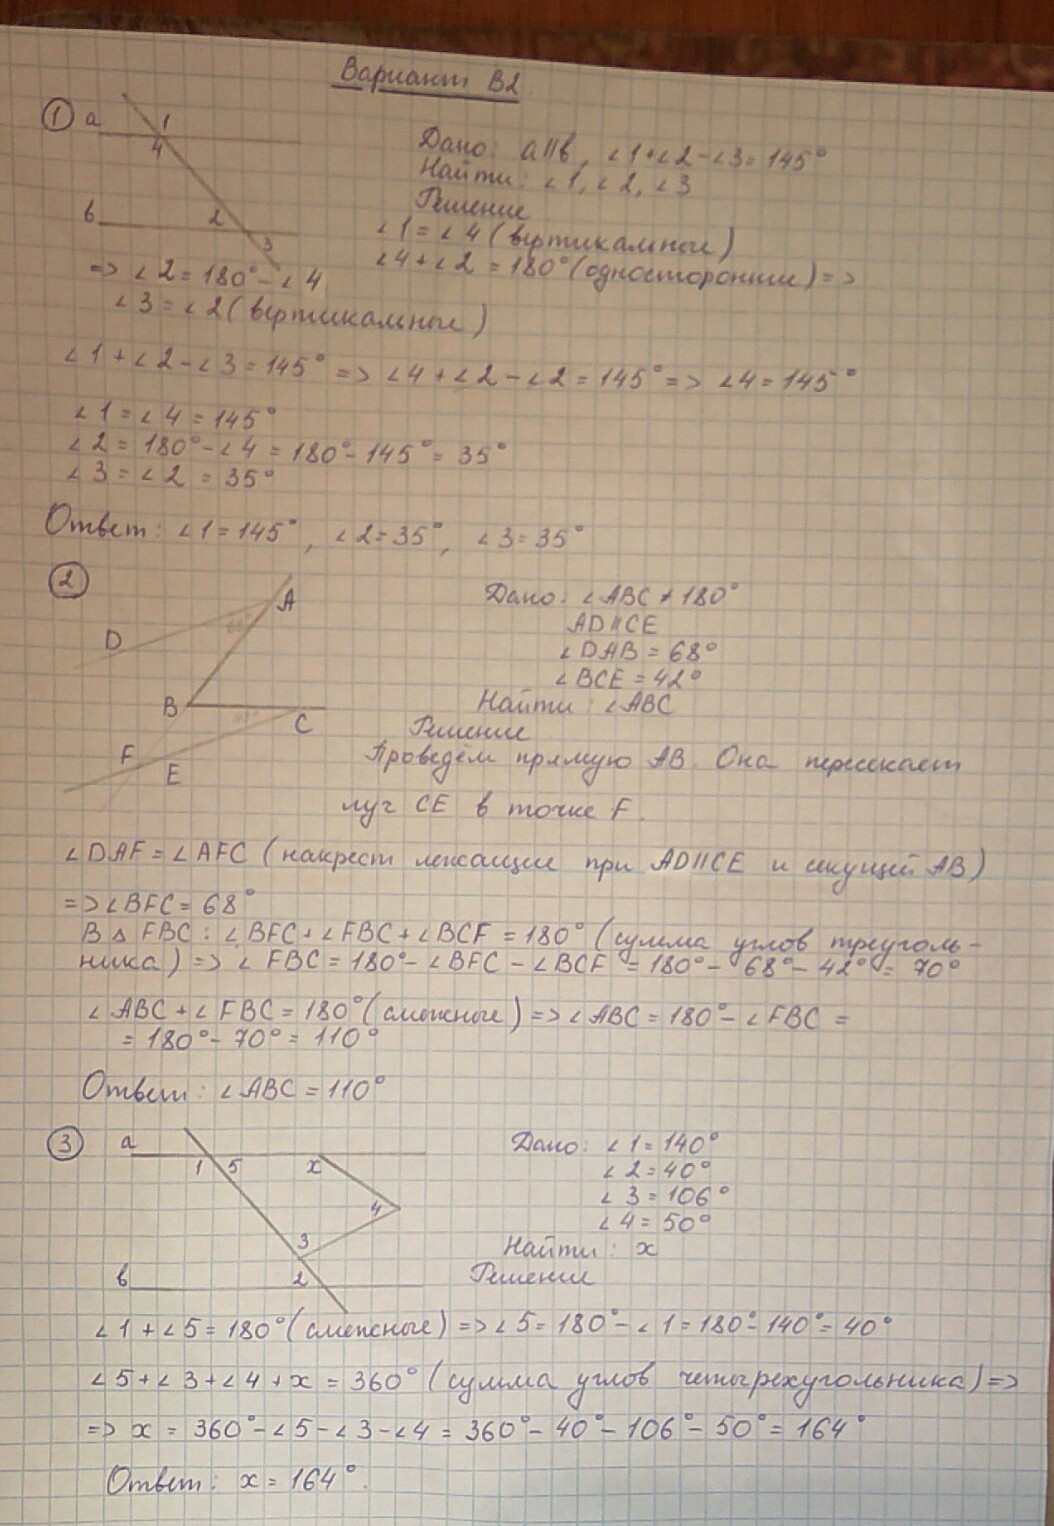 Вариант В2.
① a 1
4
в 2
3
Дано: a∥в, ∠1+∠2-∠3=145°
Найти: ∠1, ∠2, ∠3
Решение
∠1=∠4 (вертикальные)
∠4+∠2=180° (односторонние)=>
=> ∠2=180°-∠4
∠3=∠2 (вертикальные)
∠1+∠2-∠3=145° => ∠4+∠2-∠2=145° => ∠4=145°
∠1=∠4=145°
∠2=180°-∠4=180°-145°=35°
∠3=∠2=35°
Ответ: ∠1=145°, ∠2=35°, ∠3=35°
②
A
D
B
C
F
E
Дано: ∠ABC≠180°
AD∥CE
∠DAB=68°
∠BCE=42°
Найти: ∠ABC
Решение
Проведём прямую AB. Она пересекает
луч CE в точке F.
∠DAF=∠AFC (накрест лежащие при AD∥CE и секущей AB)
=>∠BFC=68°
В △ FBC: ∠BFC+∠FBC+∠BCF=180° (сумма углов треуголь-
ника) => ∠FBC=180°-∠BFC-∠BCF=180°-68°-42°=70°
∠ABC+∠FBC=180° (смежные) => ∠ABC=180°-∠FBC=
=180°-70°=110°
Ответ: ∠ABC=110°
③ a
1 5 x
4
3
в 2
Дано: ∠1=140°
∠2=40°
∠3=106°
∠4=50°
Найти: x
Решение
∠1+∠5=180° (смежные) => ∠5=180°-∠1=180°-140°=40°
∠5+∠3+∠4+x=360° (сумма углов четырехугольника)=>
=> x=360°-∠5-∠3-∠4=360°-40°-106°-50°=164°
Ответ: x=164°.